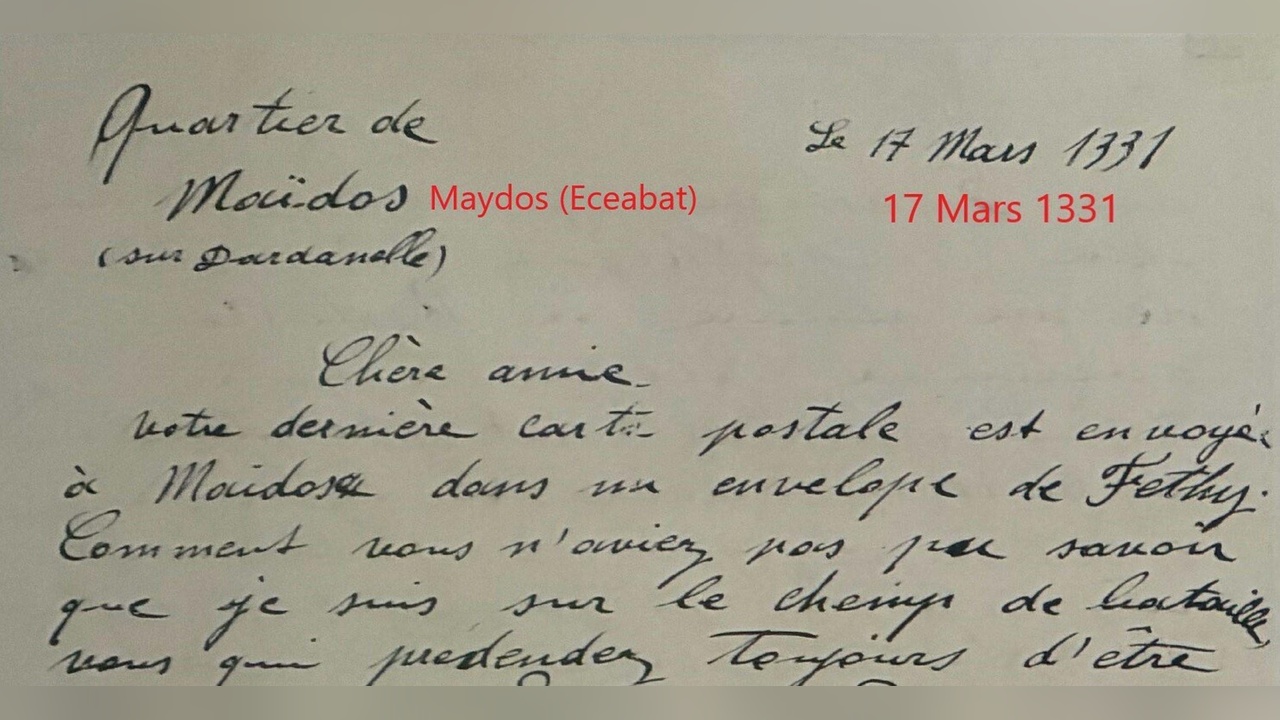 Quartier de
Le 17 Mars 1331
Maïdos Maydos (Eceabat)
17 Mars 1331
(sur Dardanelle)
Chère amie
votre dernière carte postale est envoyée
à Maidos dans un envelope de Fethy.
Comment vous n'aviez pas pu savoir
que je suis sur le chemp de bataille,
vous qui prédendez toujours d'être